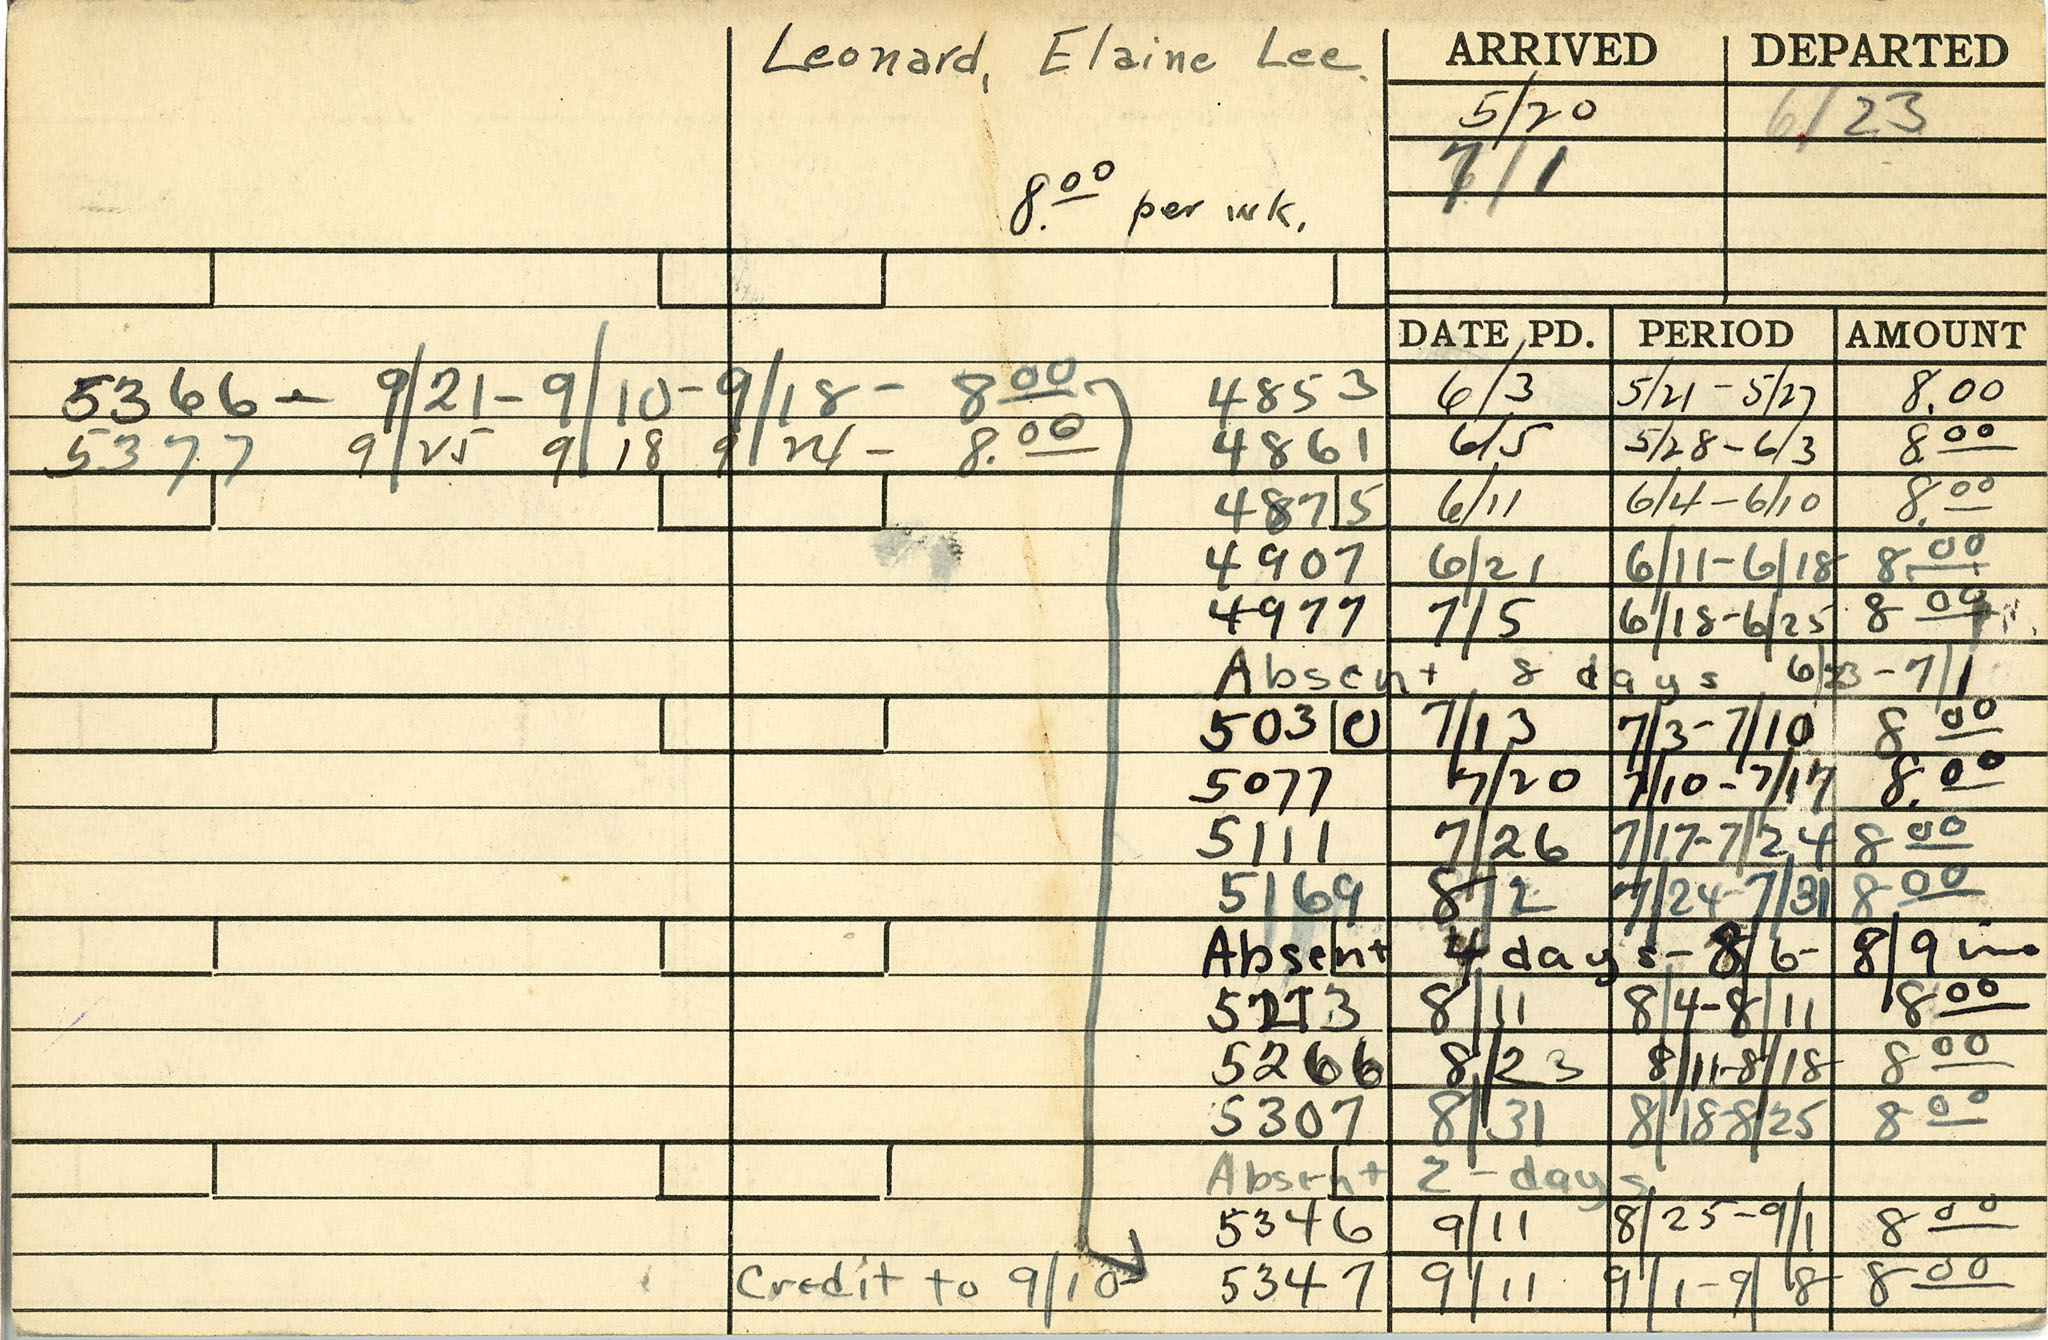 Leonard, Elaine Lee.
8.00 per wk.
ARRIVED DEPARTED
5/20 6/23
7/1
DATE PD. PERIOD AMOUNT
5366 - 9/21 - 9/10 - 9/18 - 8.00
5377 9/25 9/18 9/24 - 8.00
4853 6/3 5/21 - 5/27 8.00
4861 6/5 5/28 - 6/3 8.00
4875 6/11 6/4 - 6/10 8.00
4907 6/21 6/11 - 6/18 8.00
4977 7/5 6/18 - 6/25 8 00
Absent 8 days 6/23 - 7/1
5030 7/13 7/3 - 7/10 8 00
5077 7/20 7/10 - 7/17 8.00
5111 7/26 7/17 - 7/24 8 00
5169 8/2 7/24 - 7/31 8 00
Absent 4 days - 8/6 - 8/9
8/11 8/4 - 8/11 8 00
5266 8/23 8/11 - 8/18 8 00
5307 8/31 8/18 - 8/25 8 00
Absent 2 - days
5346 9/11 8/25 - 9/1 8 00
Credit to 9/10 5347 9/11 9/1 - 9/8 8 00